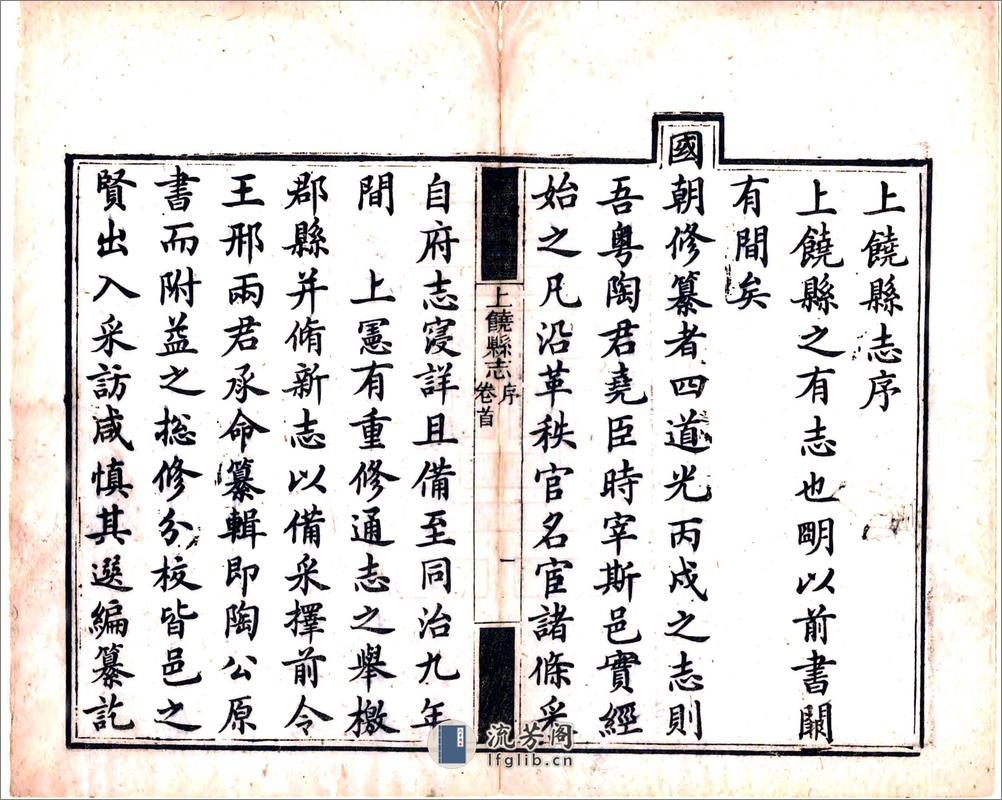 上饒縣志序
上饒縣之有志也明以前書闕
有間矣
國朝修纂者四道光丙戌之志則
吾粤陶君堯臣時宰斯邑實經
始之凡沿革秩官名宦諸條采
上饒縣志
序
卷首
一
自府志寖詳且備至同治九年
間　上憲有重修通志之舉檄
郡縣并脩新志以備采擇前令
王邢兩君承命纂輯即陶公原
書而附益之總修分校皆邑之
賢出入采訪咸慎其選編纂訖
流芳阁
lfglib.cn